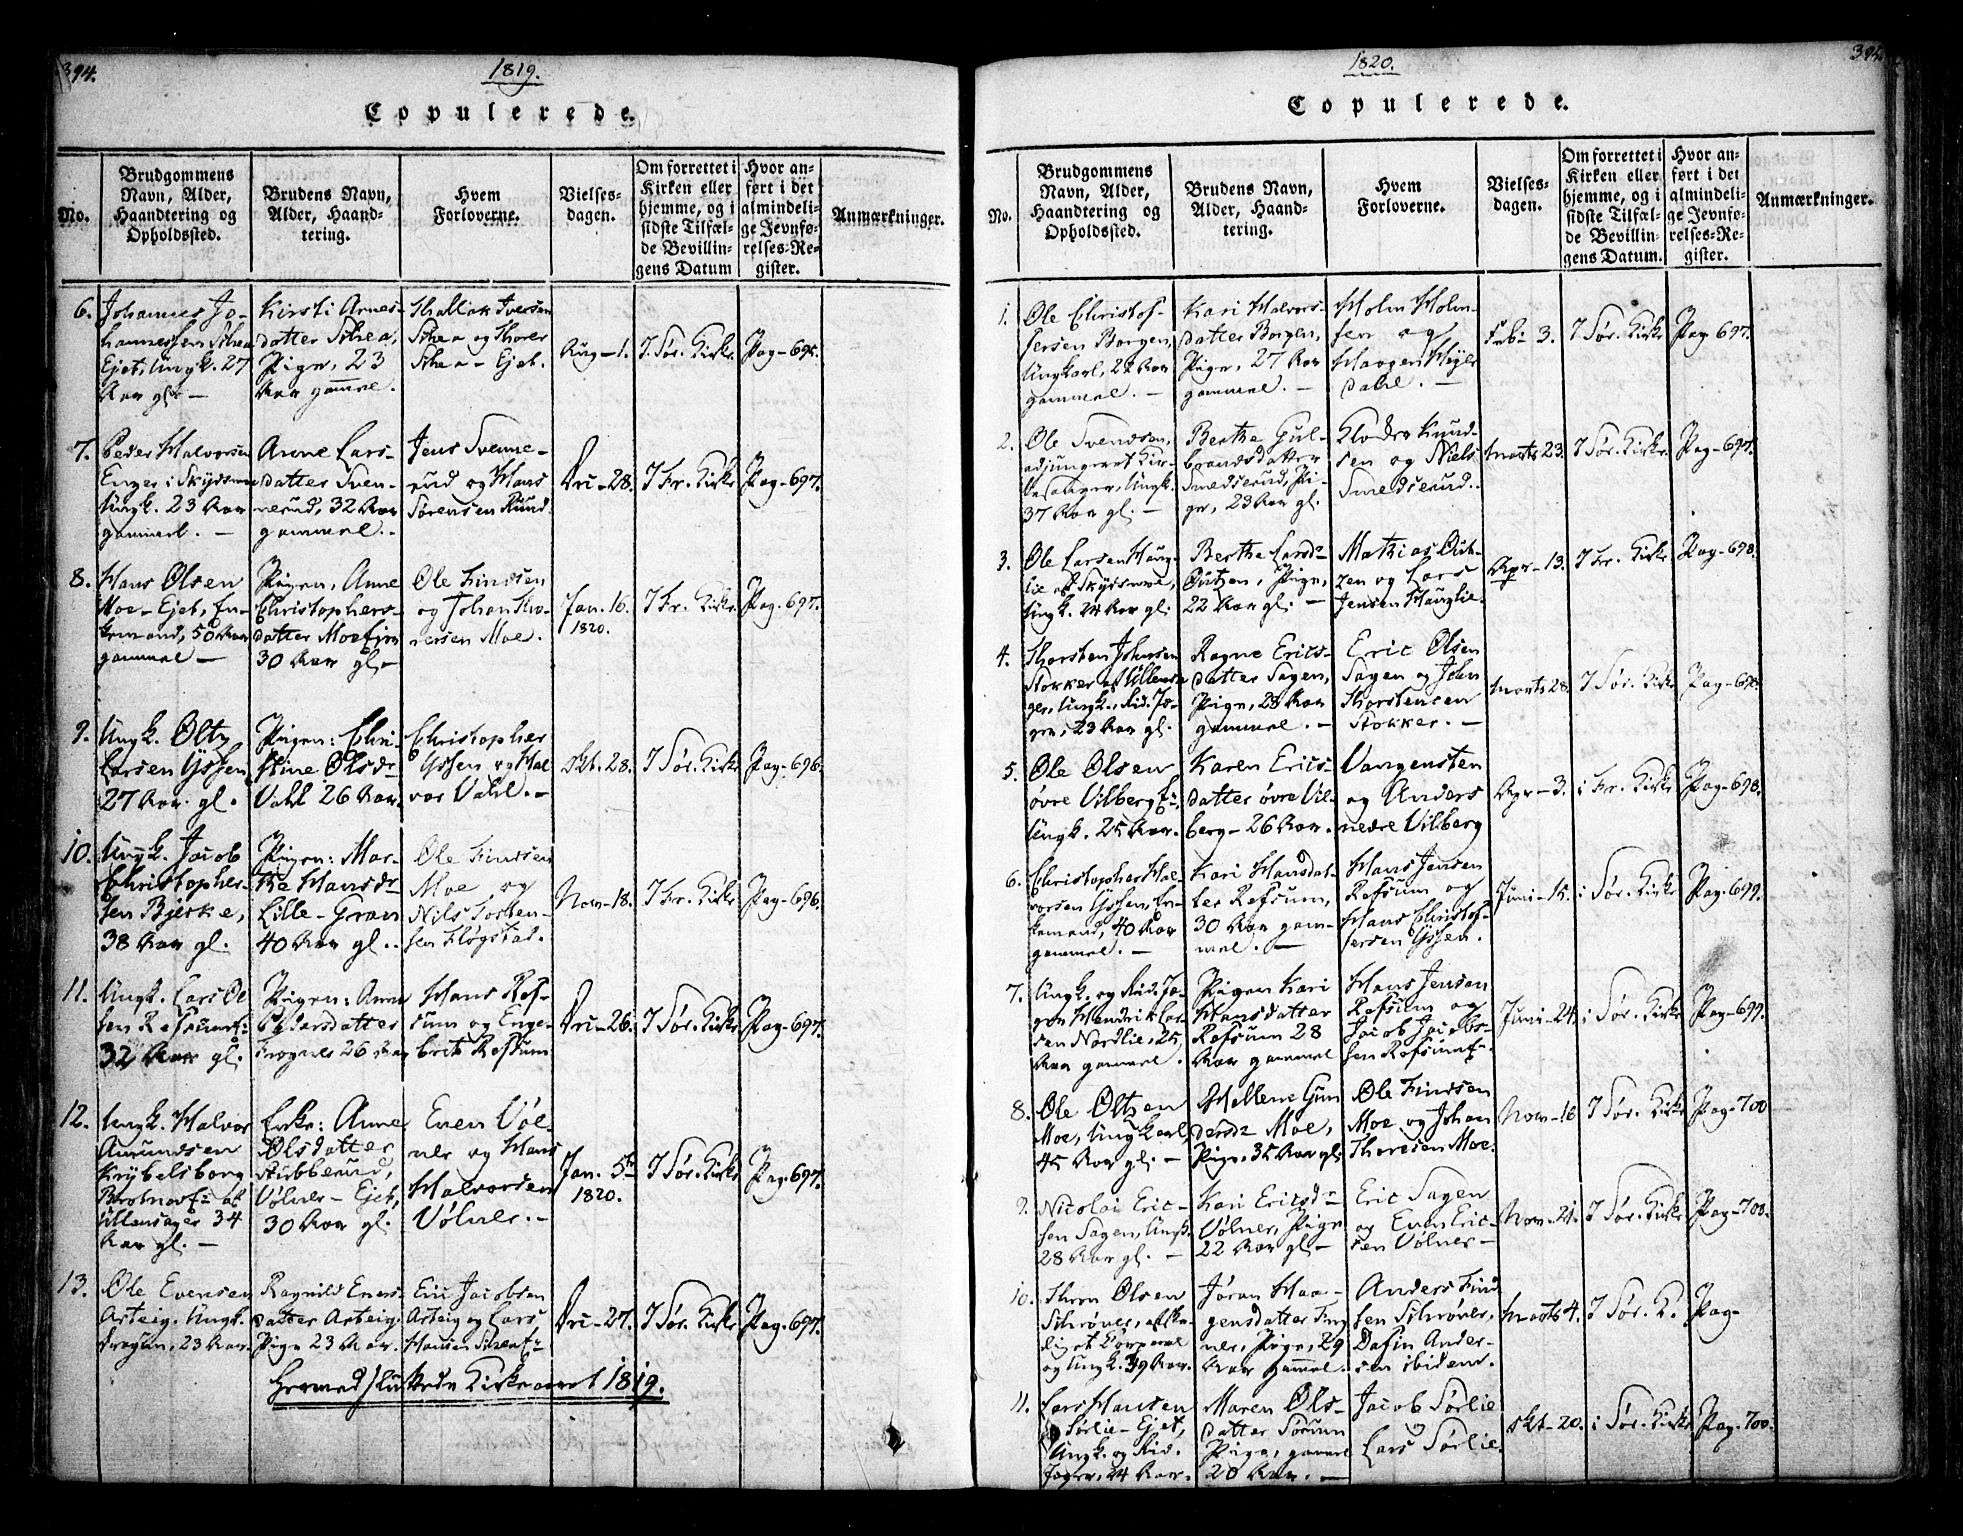 394.
1819.
Copulerede.
No.
Brudgommens
Navn, Alder,
Haandtering og
Opholdssted.
Brudens Navn,
Alder, Haand-
tering.
Hvem
Forloverne.
Vielses-
dagen.
Om forrettet i
Kirken eller
hjemme, og i
sidste Tilfæl-
de Bevillin-
gens Datum
Hvor an-
ført i det
almindeli-
ge Jevnfø-
relses-Re-
gister.
Anmærkninger.
6.
Johannes Jo-
hannessen Schea
Ejet, Ungk. 27
Aar gl. —
Kirsti Arnes-
datter Schea,
Pige, 23
Aar gammel.
Thallak Iversen
Schea og Thorer
Schea — Ejet.
Aug — 1.
I Sør. Kirke
Pag — 695.
7.
Peder Halvorsen
Enger i Skydsmoe
Ungk. 23 Aar
gammel. —
Anne Lars-
datter Sven-
nerud, 32 Aar
gammel.
Jens Svenne-
rud og Hans
Sørensen Rund
Dri — 28.
I Fr. Kirke
Pag — 697.
8.
Hans Olsen
Moe — Ejet, En-
kemand, 50 Aar
gammel —
Pigen, Anne
Christophers-
datter Moe
30 Aar gl —
Ole Findsen
og Johan Tho-
resen Moe.
Jan. 16.
1820.
I Fr. Kirke
Pag. 697.
9.
Ungk. Oltz
Larsen Gjssen
27 Aar gl.
Pigen: Chri-
stine Olsdr
Vahl 26 Aar.
Christopher
Gjssen og Hal
vor Vahl. —
Okt. 28.
I Sør. Kirke
Pag — 696.
10.
Ungk. Jacob
Christopher-
sen Bjerke,
38 Aar gl.
Pigen: Mar-
the Hansdr
Lille-Gran
40 Aar gl.
Ole Findsen
Moe og
Nils Torsten-
sen Fløgstad.
Nov — 18.
I Fr. Kirke
Pag — 696.
11.
Ungk. Lars Ol
sen Refsum
32 Aar gl.
Pigen: Anne
Pedersdatter
Frogner 26 Aar
Hans Ref-
sum og Enge-
bret Refsum
Dri — 26.
I Sør. Kirke
Pag — 697.
12.
Ungk. Halvor
Amundsen
Krybelsborg
af
Ullensager 34
Aar gl. —
Enke: Anne
Olsdatter
Stubberud,
Vølner — Ejet,
30 Aar gl.
Even Vøl-
ner og Hans
Halvorsen
Vølner. —
Jan. 5te
1820.
I Sør. Kirke
Pag. 697.
13.
Ole Evensen
Arteig. Ungk.
Dragun, 23 Aar.
Ragnild Eners
datter Arteig
Pige 23 Aar.
Eric Jacobsen
Arteig og Lars
Hansen
Dri — 27.
I Sør. Kirke
Pag. 697.
Hermed sluttede Kirkeaaret 1819.
1820.
Copulerede.
No.
Brudgommens
Navn, Alder,
Haandtering og
Opholdssted.
Brudens Navn,
Alder, Haand-
tering.
Hvem
Forloverne.
Vielses-
dagen.
Om forrettet i
Kirken eller
hjemme, og i
sidste Tilfæl-
de Bevillin-
gens Datum.
Hvor an-
ført i det
almindeli-
ge Jevnfø-
relses-Re-
gister.
Anmærkninger.
1.
Ole Christof-
fersen Borgen,
Ungkarl, 22 Aar
gammel. —
Kari Halvors-
datter Borgen,
Pige, 27 Aar
gammel. —
Holm Holm-
sen og
Haagen Heyer
dahl. —
Feb — 3.
I Sør. Kirke
Pag 697.
2.
Ole Svendsen,
adjungeret Kir-
kesanger, Ungk.
37 Aar gl. —
Berthe Gul-
brandsdatter
Smedserud, Pi-
ge, 23 Aar gl.
Knud-
sen og Niels
Smedserud.
Marts 23.
I Sør. Kirke.
Pag — 697.
3.
Ole Larsen Haug-
lie af Skydsmoe,
Ungk. 24 Aar gl.
Berthe Larsdr
Outzen, Pige,
22 Aar gl. —
Mathias Out-
zen og Lars
Jensen Hauglie.
Apr — 13.
I Fr. Kirke
Pag — 698.
4.
Thorsten Johnsen
Stokker af Ullensa
ger, Ungk., Rid. Jæ-
ger, 23 Aar gl.
Ragne Erics-
datter Sagen,
Pige, 28 Aar
gammel. —
Eric Olsen
Sagen og John
Thorstensen
Stokker. —
Marts 28.
I Sør. Kirke
Pag — 698.
5.
Ole Olsen
øvre Vilberg,
Ungk. 25 Aar.
Karen Erics-
datter øvre Vil-
berg — 26 Aar.
Vangensten
og Anders
nedre Vilberg
Apr — 3.
i Fr. Kirke
Pag — 698.
6.
Christopher Hal-
vorsen Gjssen, En-
kemand, 40 Aar
gammel. —
Kari Hansdat-
ter Refsum,
30 Aar gam-
mel. —
Hans Jensen
Refsum og
Hans Christof-
fersen Gjssen.
Juni — 15.
i Sør. Kirke
Pag. 699.
7.
Ungk. og Rid. Jæ-
ger Hendrik Lar-
sen Nordlie, 25
Aar gammel.
Pigen Kari
Hansdatter
Refsum 28
Aar gammel
Hans Jensen
Refsum og
Jacob Jacob-
sen Refsum
Juni — 24.
i Sør. Kirke
Pag — 699.
8.
Ole Oltzen
Moe, Ungkarl,
45 Aar gl. —
Hellene Gun
dersdr Moe,
Pige, 35 Aar gl
Ole Findsen
Moe og Johan
Thoresen Moe.
Nov — 16
I Sør. Kirke
Pag — 700
9.
Nicolai Eric-
sen Sagen, Ungk.
28 Aar gl. —
Kari Ericsdr
Vølner, Pige
22 Aar gl —
Eric Sagen
og Even Eric-
sen Vølner —
Nov — 21.
I Sør. Kirke
Pag — 700.
10.
Thron Olsen
Schrøver,
Corporal
og Ungk. 39 Aar.
Jøran Haa-
gensdatter
Pige, 29
Aar gammel.
Anders Find
sen Schrøver,
Dafin Ander-
sen ibidem.
Marts 4.
I Sør. K.
Pag —
11.
Lars Hansen
Sørlie — Ejet,
Ungk. og Rid.
Jæger, 24 Aar.
Maren Ols-
datter Sørum
Pige, gammel
20 Aar. —
Jacob Sørlie
og
Lars Sørlie.
Okt — 20.
i Sør. Kirke
Pag. 700.